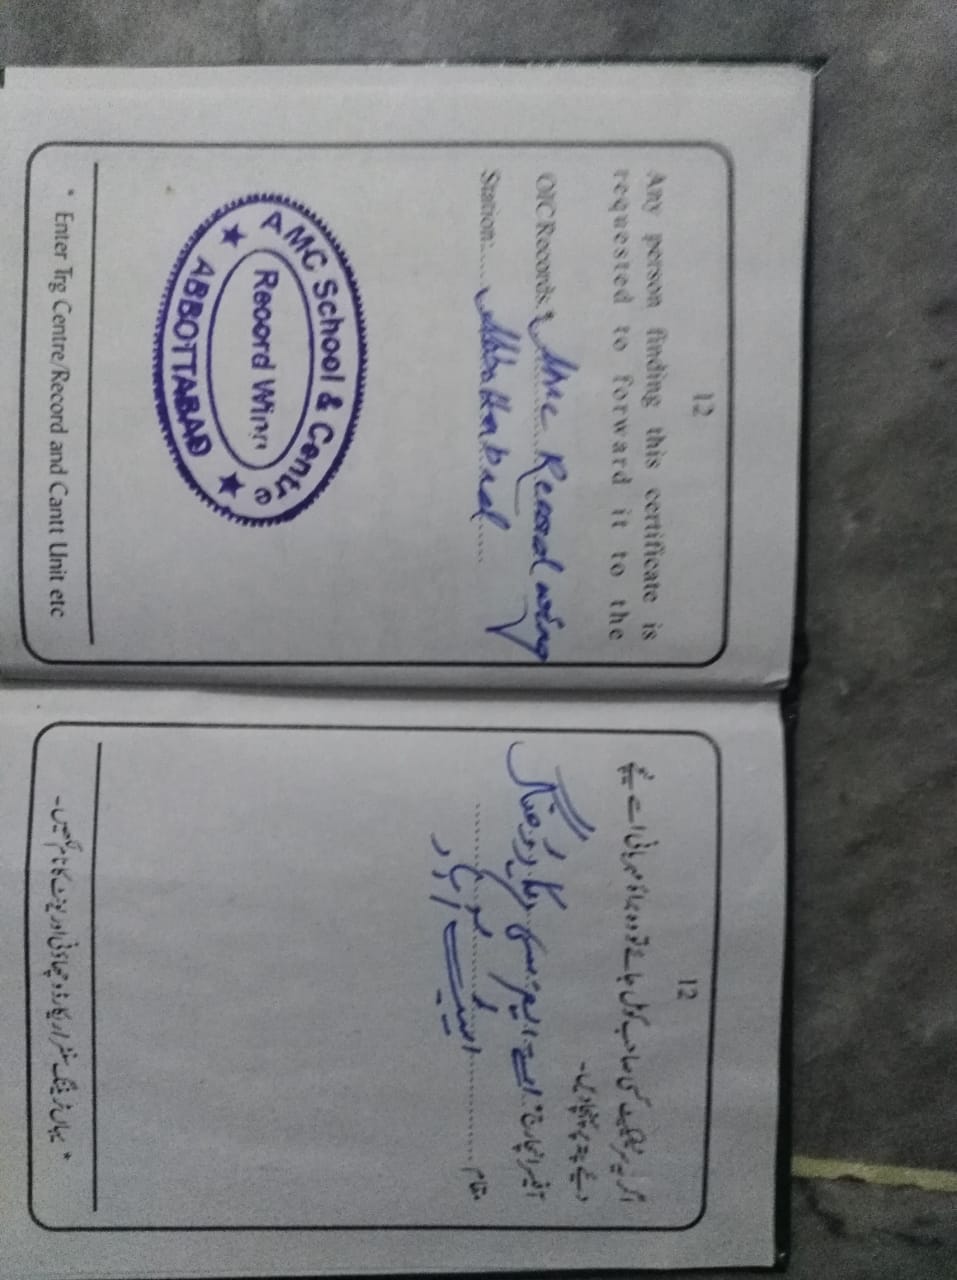 12
Any person finding this certificate is
requested to forward it to the
OIC Records * AMC Record wing
Station: Abbottabad
AMC School & Centre
Record Wing
ABBOTTABAD
* Enter Trg Centre/Record and Cantt Unit etc
12
اگر یہ سرٹیفکیٹ کسی صاحب کو مل جائے تو وہ براہ مہربانی اسے نیچے
دیئے پتہ پر پہنچا دیں۔
آفیسر انچارج* اے ایم سی ریکارڈ ونگ
مقام
ایبٹ آباد
* یہاں ٹریننگ سنٹر اور ریکارڈ و چھاؤنی اور یونٹ کا نام لکھیں۔